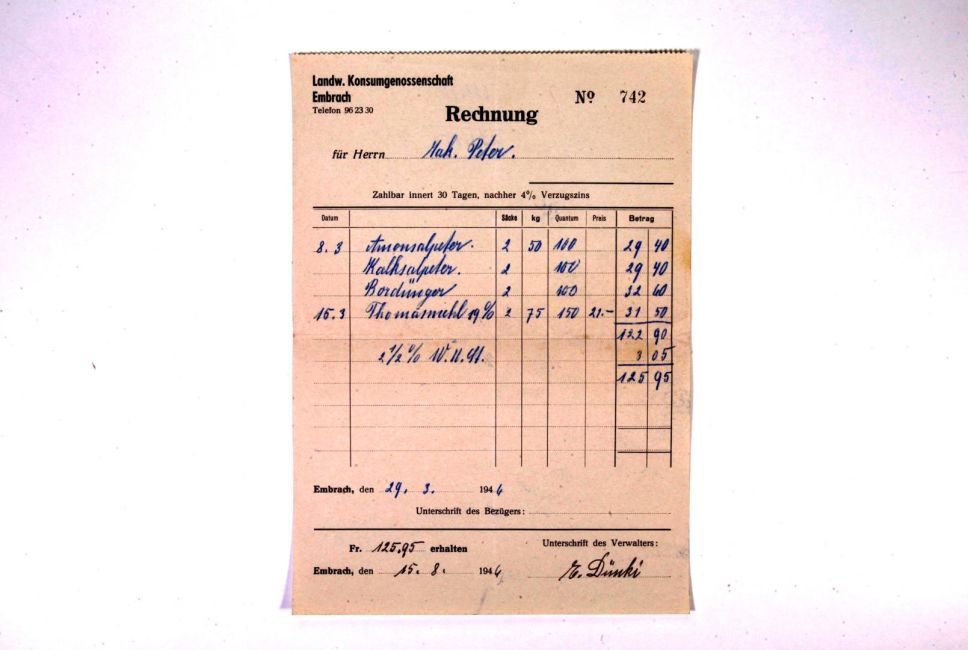 Landw. Konsumgenossenschaft
Embrach
Telefon 96 23 30
Nº 742
Rechnung
für Herrn Jak. Peter.
Zahlbar innert 30 Tagen, nachher 4% Verzugszins
Datum Säcke kg Quantum Preis Betrag
8. 3 Amonsalpeter. 2 50 100 29 40
Kalksalpeter. 2 100 29 40
Bordünger 2 100 32 60
15. 3 Thomasmehl 19% 2 75 150 21.- 31 50
122 90
2 1/2 % W.U.St. 3 05
125 95
Embrach, den 29. 3. 1946
Unterschrift des Bezügers:
Fr. 125.95 erhalten
Unterschrift des Verwalters:
Embrach, den 15. 8. 1946 E. Dünki